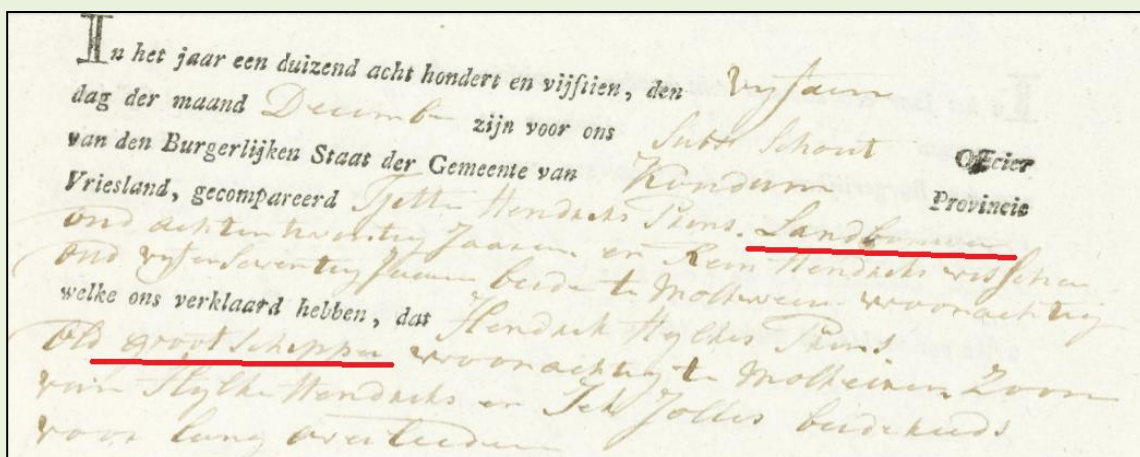 In het jaar een duizend acht hondert en vijftien, den
dag der maand Decemb zijn voor ons Subst Schout Officier
van den Burgerlijken Staat der Gemeente van Koudum Provincie
Vriesland, gecompareerd Tjette Hendriks Prins. Landbouwer
oud achtentwintig Jaaren en Rein Hendriks visscher
oud vyfenseventig Jaaren beide te Molkweern woonachtig
welke ons verklaard hebben, dat Hendrick Hylkes Prins.
old groot Schipper woonachtig te Molkweren Zoon
van Hylke Hendriks en Jolles beide reeds
voor lang overleeden